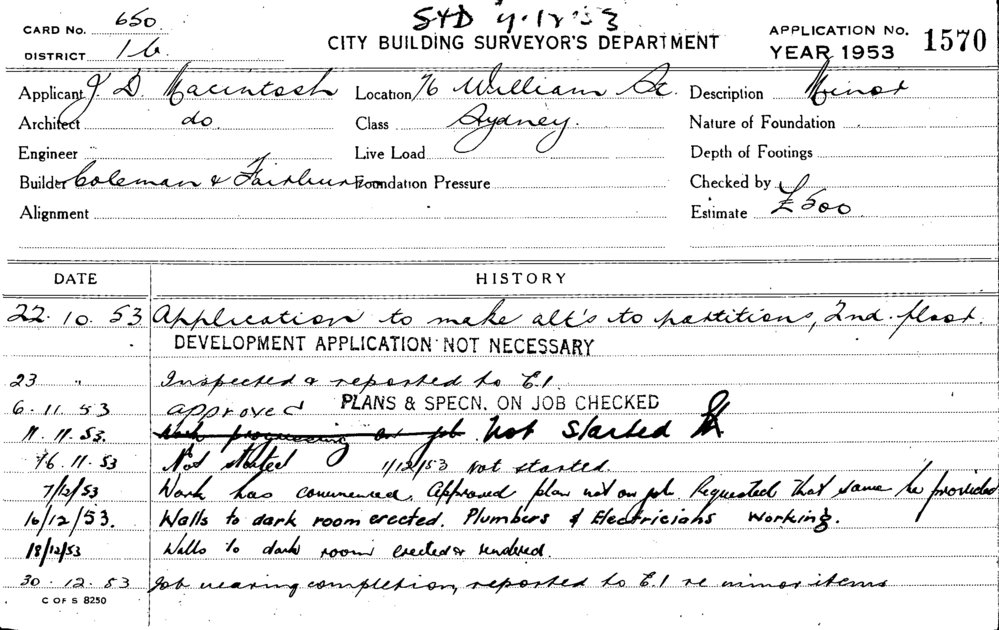 CARD No. 650
STD 4.12.53
APPLICATION No. 1570
DISTRICT 1b.
CITY BUILDING SURVEYOR'S DEPARTMENT
YEAR 1953
Applicant J. D. Macintosh Location 76 William St. Description Minor
Architect do. Class Sydney. Nature of Foundation
Engineer Live Load Depth of Footings
Builder Coleman & Fairburn Foundation Pressure Checked by
Alignment Estimate £500
DATE HISTORY
22.10.53 Application to make alt's to partitions, 2nd. floor.
DEVELOPMENT APPLICATION NOT NECESSARY
23 " Inspected & reported to E.1.
6.11.53 approved PLANS & SPECN. ON JOB CHECKED
11.11.53. Work progressing on job Not started
16.11.53 Not started 1/12/53 Not started.
7/12/53 Work has commenced. Approved plan not on job. Requested that same be provided
16/12/53. Walls to dark room erected. Plumbers & Electricians working.
18/12/53 Walls to dark room erected & rendered.
30.12.53 Job nearing completion, reported to E.1 re minor items
C OF S 8250